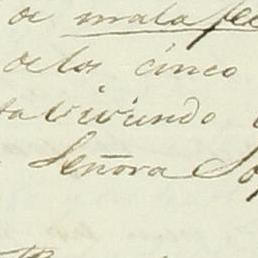 de mala fe
de los cinco
ta viviendo
Señora So